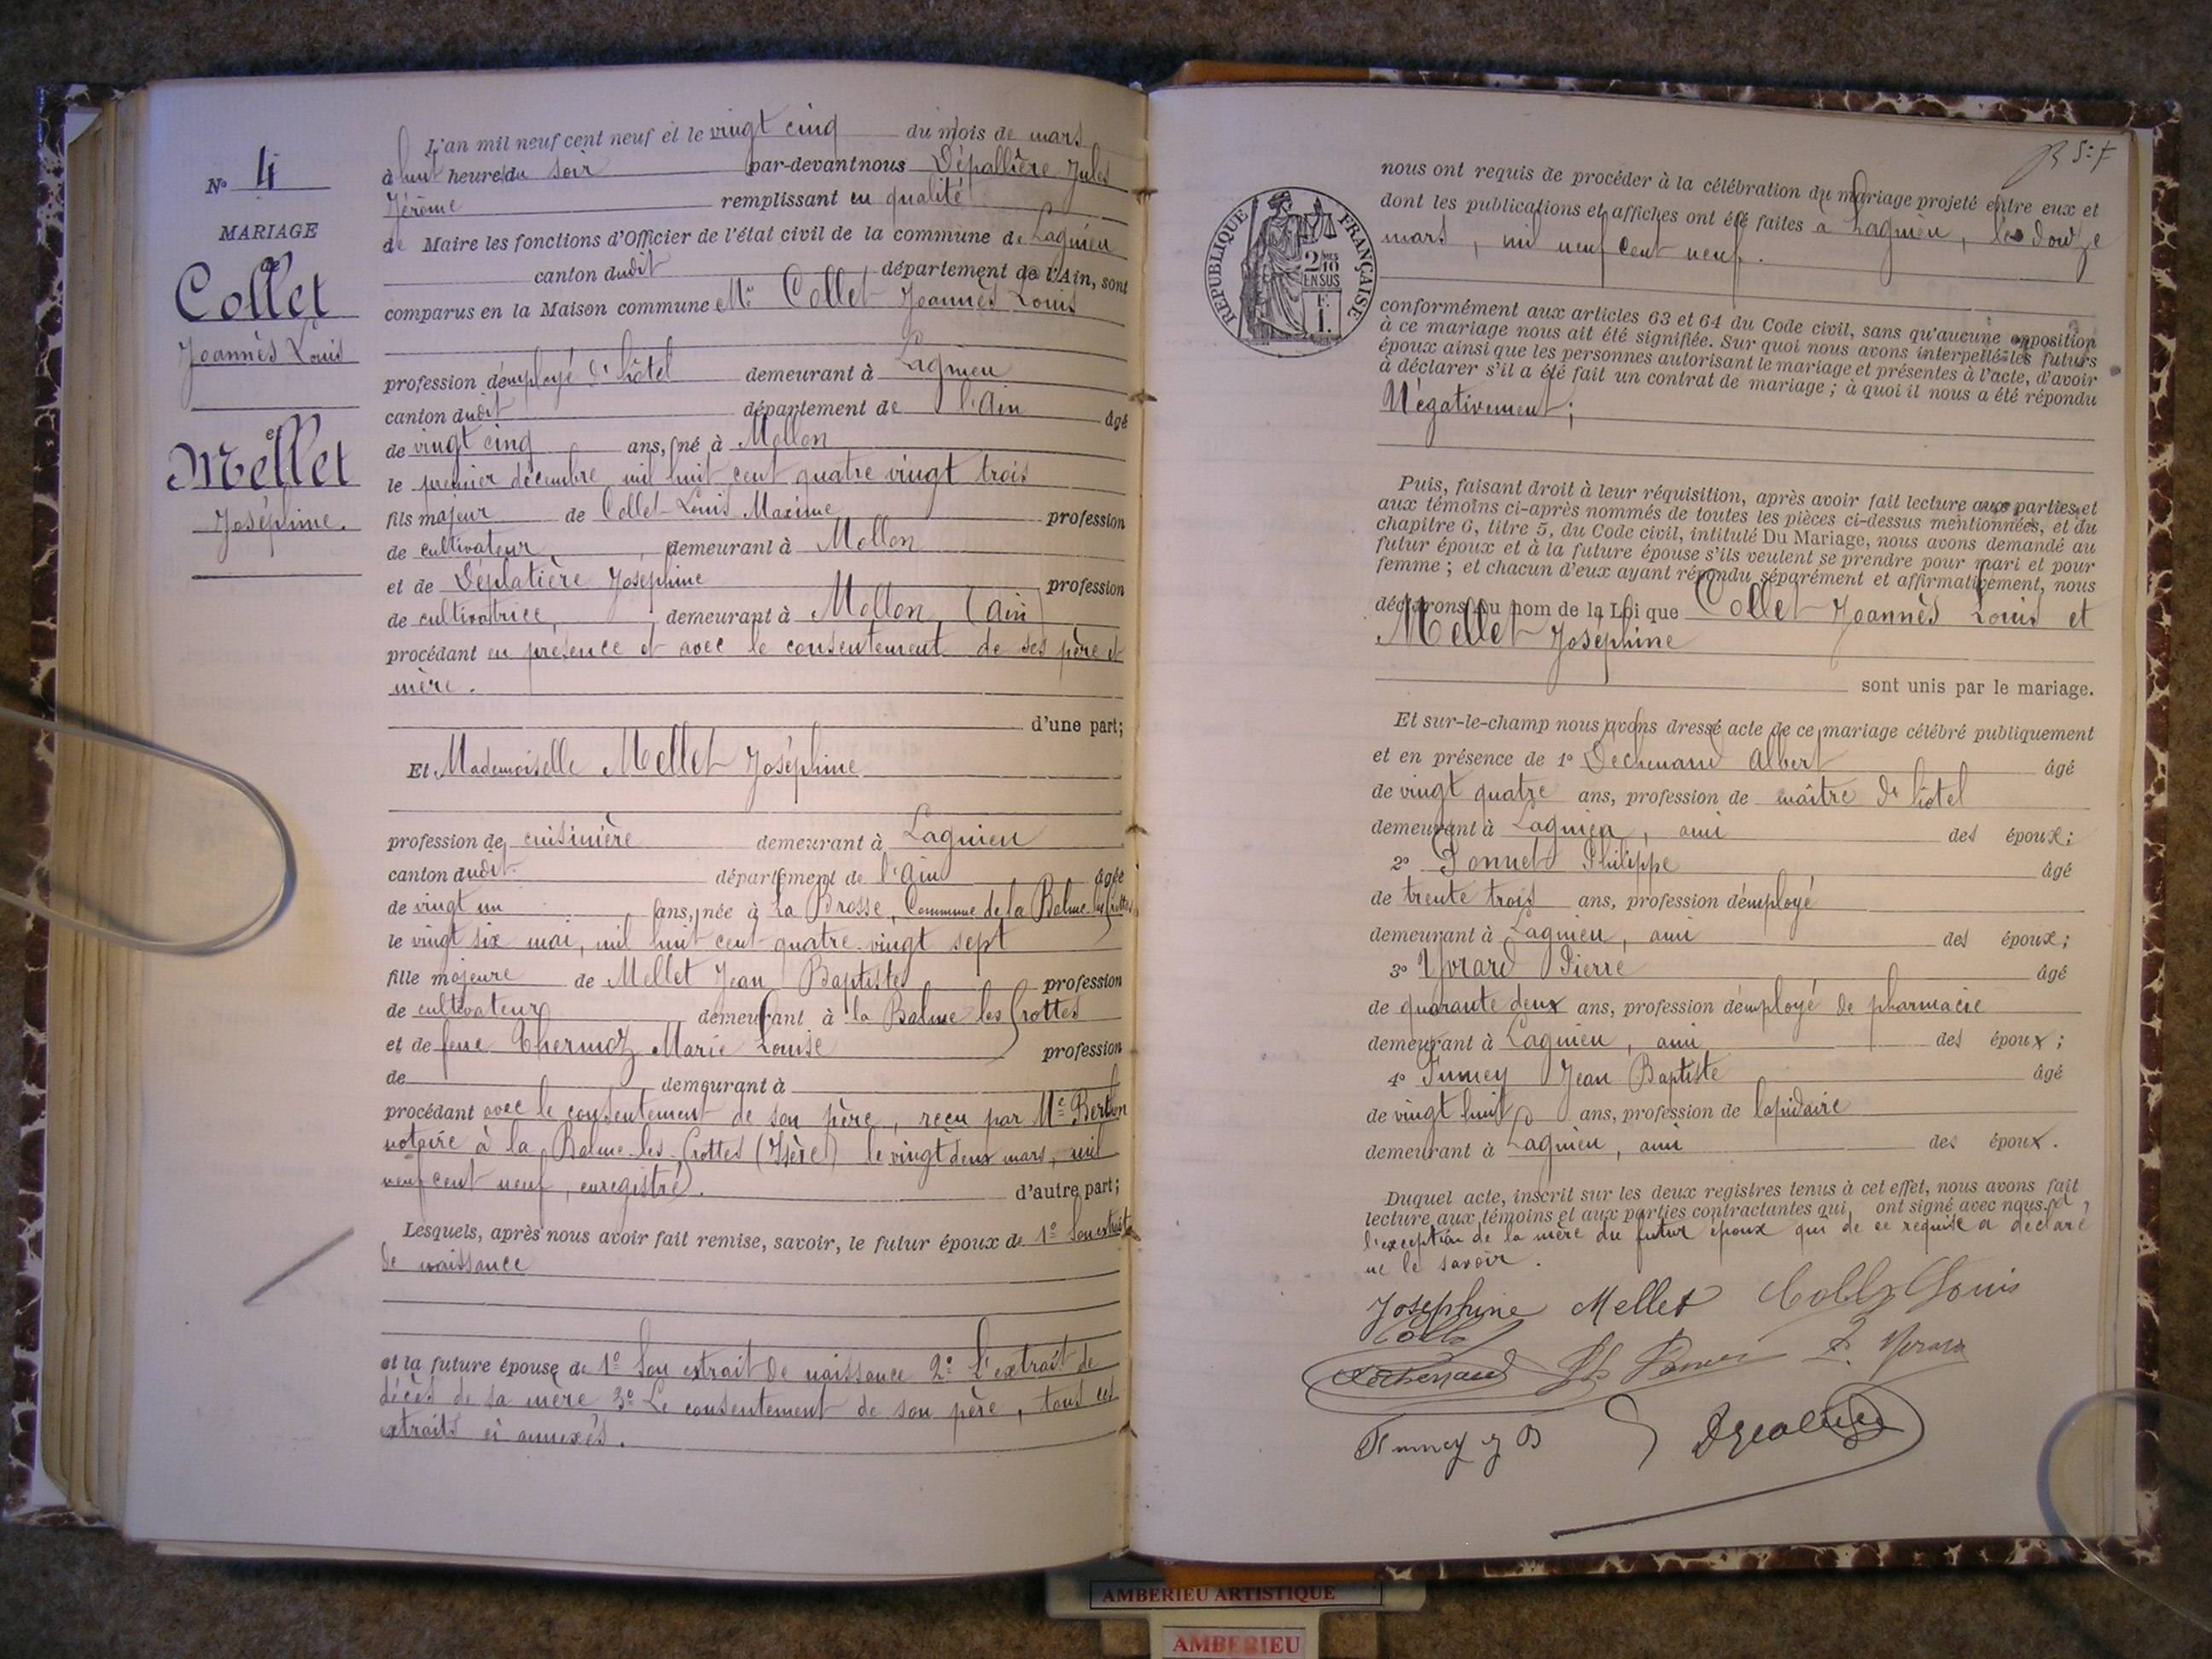 L'an mil neuf cent neuf et le vingt cinq du mois de mars
à huit heures du soir par-devant nous Dépallière Jules
Jérôme remplissant en qualité
de Maire les fonctions d'Officier de l'état civil de la commune de Lagnieu
canton dudit département de l'Ain, sont
comparus en la Maison commune Mr Collet Joannès Louis
profession d'employé d'hôtel demeurant à Lagnieu
canton dudit département de l'Ain âgé
de vingt cinq ans, né à Mollon
le premier décembre mil huit cent quatre vingt trois
fils majeur de Collet Louis Maxime profession
de cultivateur, demeurant à Mollon
et de Déplatière Joséphine profession
de cultivatrice, demeurant à Mollon (Ain)
procédant en présence et avec le consentement de ses père et
mère.
d'une part;
Et Mademoiselle Mellet Joséphine
profession de cuisinière demeurant à Lagnieu
canton dudit département de l'Ain âgée
de vingt un ans, née à La Brosse, Commune de la Balme les Grottes
le vingt six mai, mil huit cent quatre-vingt sept
fille majeure de Mellet Jean Baptiste profession
de cultivateur demeurant à la Balme les Grottes
et de feue Thermoz Marie Louise profession
de demeurant à
procédant avec le consentement de son père, reçu par Me Berthon
notaire à la Balme-les-Grottes (Isère) le vingt deux mars, mil
neuf cent neuf, enregistré. d'autre part;
Lesquels, après nous avoir fait remise, savoir, le futur époux de 1º Son extrait
de naissance
et la future épouse de 1º Son extrait de naissance 2º L'extrait de
décès de sa mère 3º Le consentement de son père, tous ces
extraits ci annexés.
Nº 4
MARIAGE
de
Collet
Joannès Louis
et
Mellet
Joséphine.
nous ont requis de procéder à la célébration du mariage projeté entre eux et
dont les publications et affiches ont été faites à Lagnieu, le douze
mars, mil neuf cent neuf.
RÉPUBLIQUE FRANÇAISE
2 MES
10
EN SUS
F.
1.
conformément aux articles 63 et 64 du Code civil, sans qu'aucune opposition
à ce mariage nous ait été signifiée. Sur quoi nous avons interpellé les futurs
époux ainsi que les personnes autorisant le mariage et présentes à l'acte, d'avoir
à déclarer s'il a été fait un contrat de mariage; à quoi il nous a été répondu
Négativement;
Puis, faisant droit à leur réquisition, après avoir fait lecture aux parties et
aux témoins ci-après nommés de toutes les pièces ci-dessus mentionnées, et du
chapitre 6, titre 5, du Code civil, intitulé Du Mariage, nous avons demandé au
futur époux et à la future épouse s'ils veulent se prendre pour mari et pour
femme; et chacun d'eux ayant répondu séparément et affirmativement, nous
déclarons au nom de la Loi que Collet Joannès Louis et
Mellet Joséphine
sont unis par le mariage.
Et sur-le-champ nous avons dressé acte de ce mariage célébré publiquement
et en présence de 1º Dechenaud Albert âgé
de vingt quatre ans, profession de maître d'hôtel
demeurant à Lagnieu, ami des époux;
2º Ponnet Philippe âgé
de trente trois ans, profession d'employé
demeurant à Lagnieu, ami des époux;
3º Yvrard Pierre âgé
de quarante deux ans, profession d'employé de pharmacie
demeurant à Lagnieu, ami des époux;
4º Jean Baptiste âgé
de vingt huit ans, profession de lapidaire
demeurant à Lagnieu, ami des époux.
Duquel acte, inscrit sur les deux registres tenus à cet effet, nous avons fait
lecture aux témoins et aux parties contractantes qui ont signé avec nous à
l'exception de la mère du futur époux qui de ce requise a déclaré
ne le savoir.
Josephine Mellet Collet Louis
Collet
Dechenaud P. Yvrard
AMBERIEU ARTISTIQUE
AMBERIEU